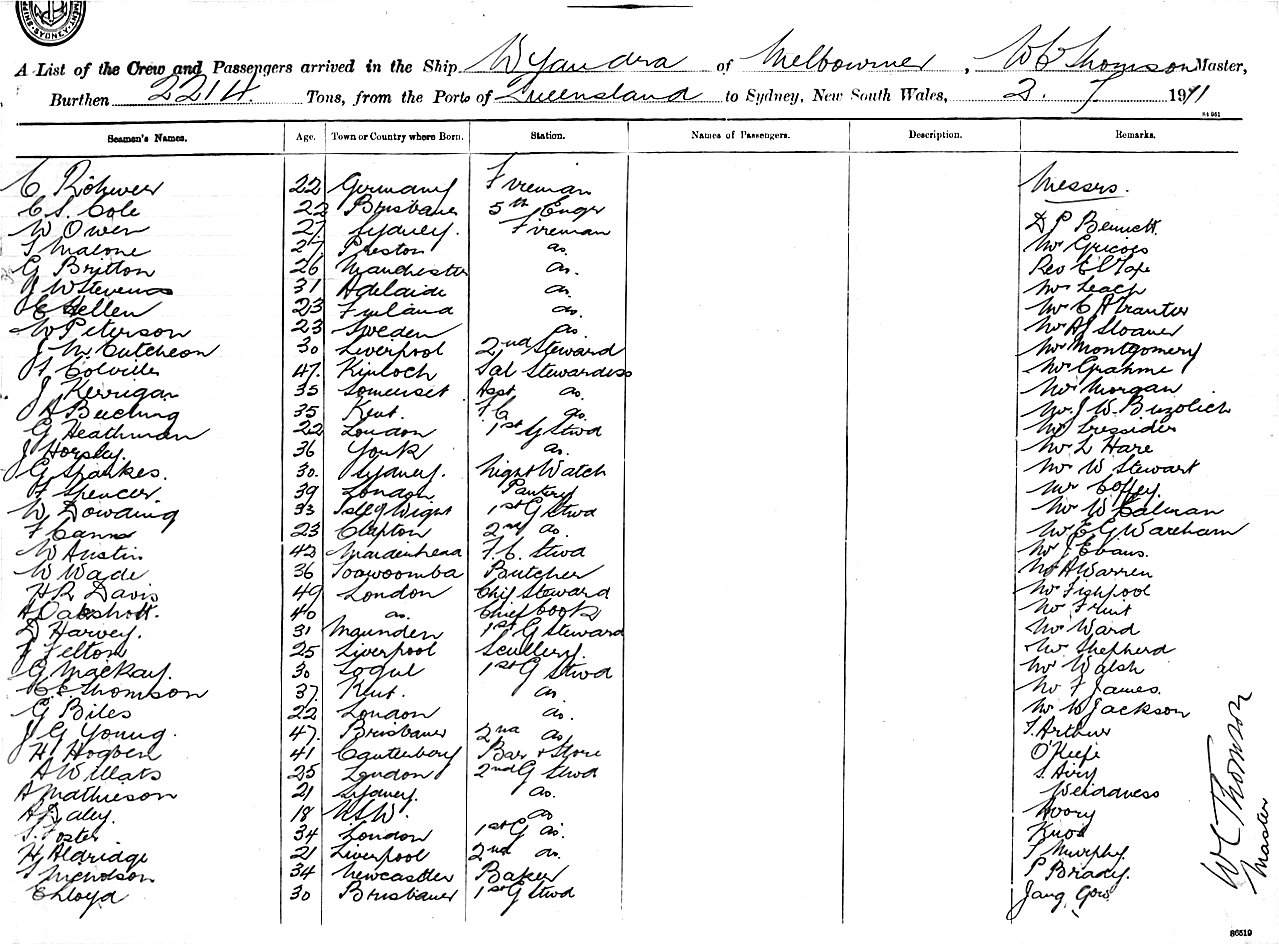 SYDNEY
A List of the Crew and Passengers arrived in the Ship Wyandra of Melbourne, W C Thomson Master,
Burthen 2214. Tons, from the Port of Queensland to Sydney, New South Wales, 2. 7 1911
Seamen's Names. Age. Town or Country where Born. Station. Names of Passengers. Description. Remarks.
C Röhwer 22 Germany Fireman Messrs.
C S. Cole 22 Brisbane 5th Engr
W Owen 27 Sydney. Fireman D P Bennett.
Malone 27 Preston do.
G Britton 26 Manchester do. Rev
J W Stevens 31 Adelaide do. Mr Leach
E Hellen 23 Finland do. Mr C H Tranter
W Peterson 23 Sweden do. Mr Sloane
J McCutcheon 30 Liverpool 2nd Steward Mr Montgomery
Colville 47. Kinloch Sal Stewardess Mr Grahme
J Kerrigan 35 Somerset Asst do. Mr Morgan
Beeching 35 Kent. F.C. do. Mr. J. W. Buzolich
G Heathman 22 London 1st G Stwd Mr Tressider
J Horsley. 36 York do. Mr L Hare
G Sparkes. 30. Sydney. Night Watch Mr W Stewart
F Spencer. 39 London. Pantry Mr Coffey.
W Dowding 33 Isle of Wight 1st G Stwd Mr W Calman
F Cann 23 Clapton 2nd do. Mr E G Wareham
W Austin 42 Maidenhead F.C. Stwd Mr J Evans.
W Wade 36 Toowoomba Butcher Mr A Warren
H R Davis 49 London Chief Steward Mr Fishpool
A Oakshott. 40 do. Chief Cook
D Harvey. 31 1st G Steward Mr Ward
F Felton 25 Liverpool Scullery. Mr Shepherd
G Mackay. 30 1st G Stwd Mr Walsh
C. E. Thomson 37 Kent. do. Mr F James.
G Biles 22 London do. Mr W Jackson
J G Young. 47. Brisbane 2nd do. T. Arthur
H Hogben 41 Canterbury Bar & Store O'Keefe
A Willats 25 London 2nd G Stwd S. Airy
A Mathieson 21 Sydney. do.
A Daley. 18 NSW. do Ivory
S. Foster 34 London 1st G do. Knox
H Aldridge 21 Liverpool 2nd do. Murphy.
Nicholson 34 Newcastle Baker P Brady.
E Lloyd 30 Brisbane 1st G Stwd Jang Gow
W C Thomson
Master
86519